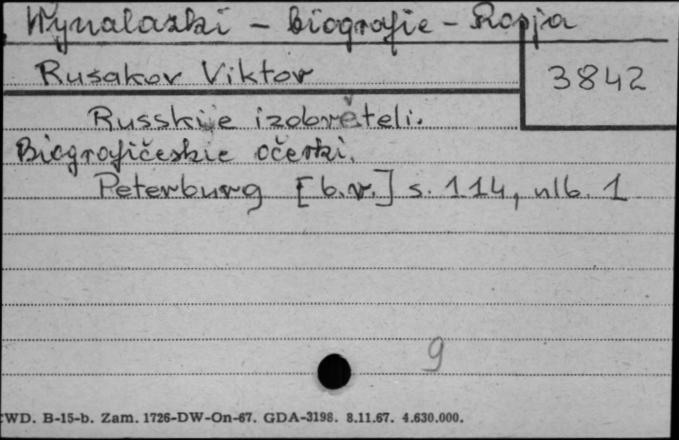 Wynalazki - biografie - Rosja
Rusakov Viktor
3842
Russkie izobrěteli.
Biografičeskie očerki.
Peterburg [b.r.] s. 114, nlb. 1
9
WD. B-15-b. Zam. 1726-DW-On-67. GDA-3198. 8.11.67. 4.630.000.